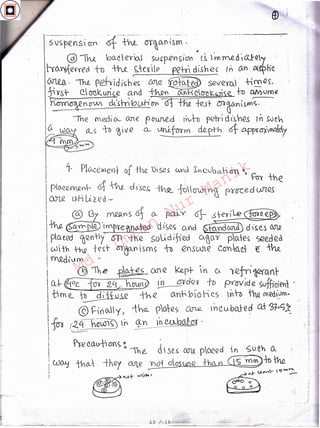 suspension of the organism.
@ The bacterial suspension is immediately
transferred to the sterile petri dishes in an aseptic
area. The petridishes are rotated several times,
first clockwise and then anticlockwise to assume
homogenous distribution of the test organisms.
The media are poured into petridishes in such
a way as to give a uniform depth of approximately
4 mm
4. Placement of the Discs and Incubation: For the
placement of the discs the following procedures
are utilized-
@ By means of a pair of sterile forceps,
the sample impregnated discs and standard discs are
placed gently on the solidified agar plates seeded
with the test organisms to ensure contact c the
medium.
The plates are kept in a refrigerant
at 4°C for 24 hours in order to provide sufficient
time to diffuse the antibiotics into the medium.
© Finally, the plates are incubated at 37.5°C
for 24 hours in an incubator.
Precautions: The discs are placed in such a
way that they are not closure than 15 mm to the
at least 15mm